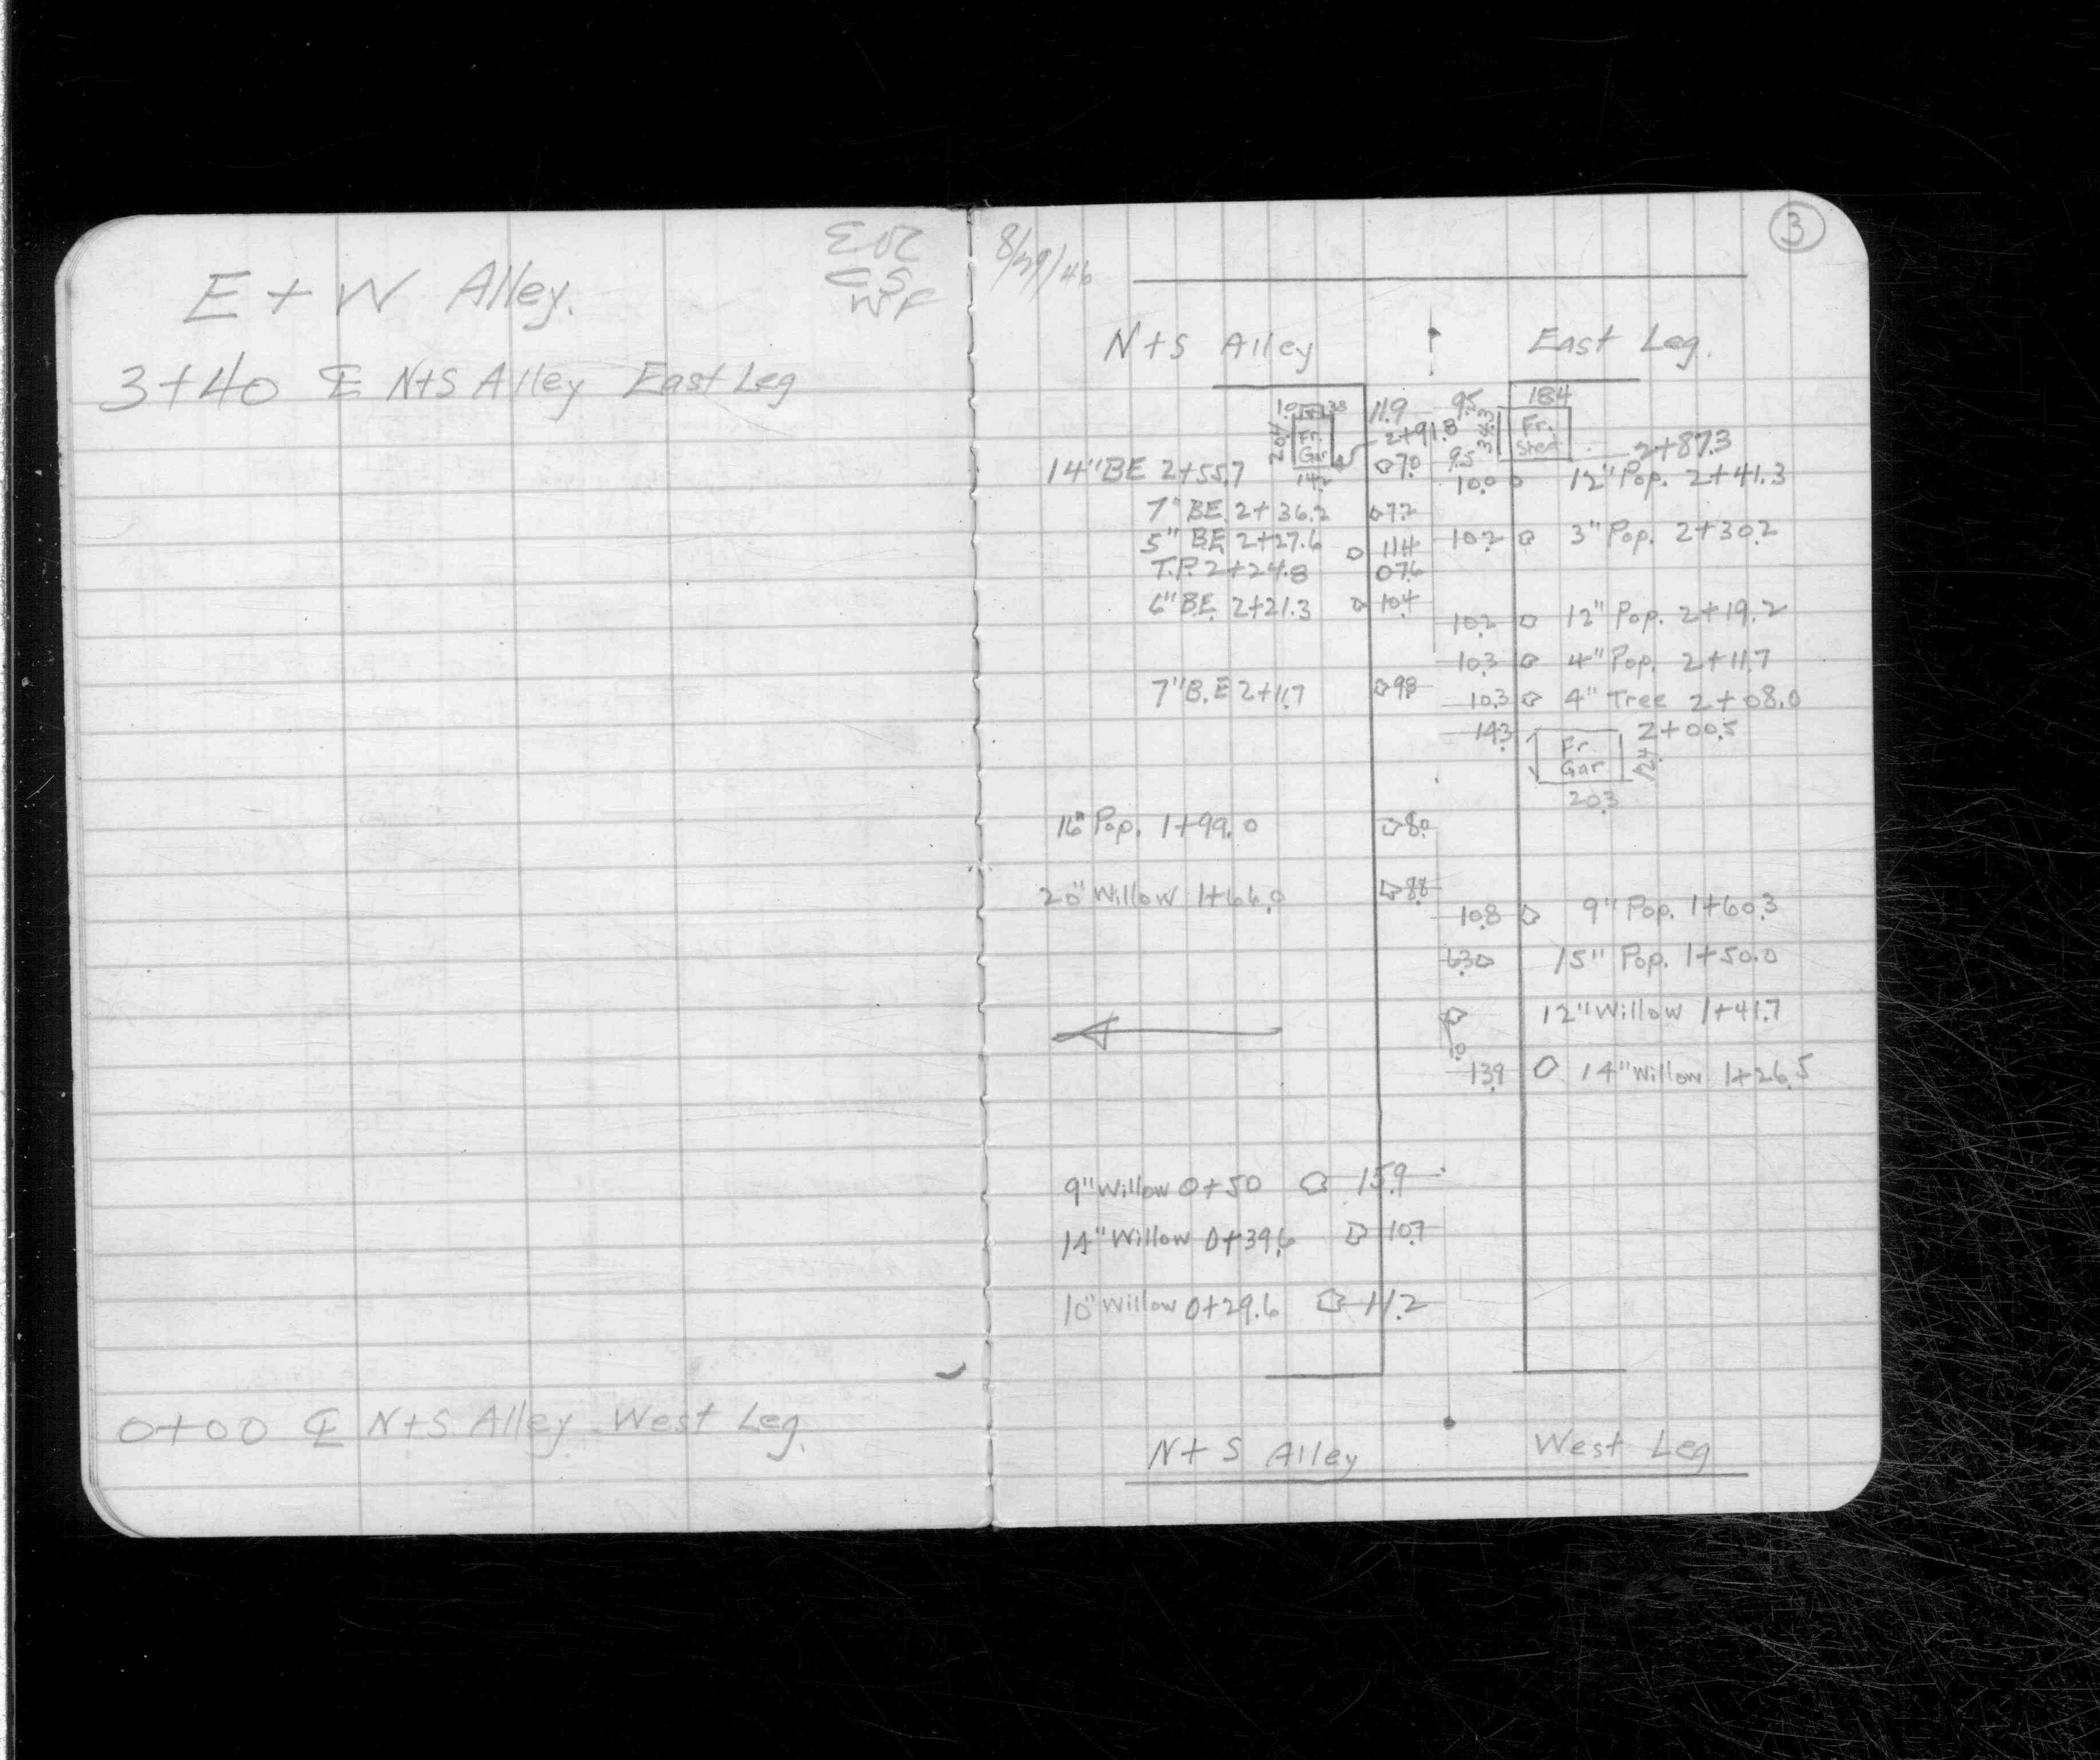 E + W Alley.
3+40 ℄ N+S Alley East Leg
0+00 ℄ N+S Alley West Leg.
8/29/46
3
N+S Alley East Leg.
11.9 9.5 18.4
2+91.8 34.3 Fr. Shed
20.4 Fr. Gar 14.2
2+87.3
14" BE 2+55.7 7.0 9.5
10.0 12" Pop. 2+41.3
7" BE 2+36.2 7.2
5" BE 2+27.6 11.4 10.2 3" Pop. 2+30.2
T.P. 2+24.8 07.6
6" BE 2+21.3 10.4 10.2 12" Pop. 2+19.2
10.3 4" Pop. 2+11.7
7" B.E 2+11.7 9.8 10.3 4" Tree 2+08.0
14.3 Fr. Gar 2+00.5
20.3
16" Pop. 1+99.0 8.0
20" Willow 1+66.0 8.8
10.8 9" Pop. 1+60.3
6.3 15" Pop. 1+50.0
1.0 12" Willow 1+41.7
13.9 14" Willow 1+26.5
9" Willow 0+50 15.9
14" Willow 0+39.6 10.7
10" Willow 0+29.6 11.2
N+S Alley West Leg